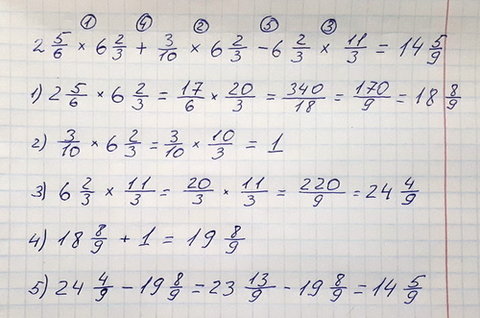 ① ④ ② ⑤ ③
2 5/6 × 6 2/3 + 3/10 × 6 2/3 - 6 2/3 × 11/3 = 14 5/9
1) 2 5/6 × 6 2/3 = 17/6 × 20/3 = 340/18 = 170/9 = 18 8/9
2) 3/10 × 6 2/3 = 3/10 × 10/3 = 1
3) 6 2/3 × 11/3 = 20/3 × 11/3 = 220/9 = 24 4/9
4) 18 8/9 + 1 = 19 8/9
5) 24 4/9 - 19 8/9 = 23 13/9 - 19 8/9 = 14 5/9